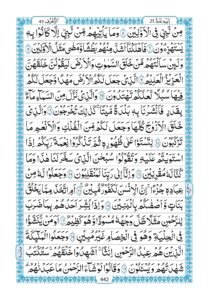 اليه يرد ٢٥
الزخرف ٤٣
مِنْ نَّبِيٍّ فِي الْاَوَّلِيْنَ وَمَا يَاْتِيْهِمْ مِّنْ نَّبِيٍّ اِلَّا كَانُوْا بِهٖ
يَسْتَهْزِءُوْنَ فَاَهْلَكْنَآ اَشَدَّ مِنْهُمْ بَطْشًا وَّمَضٰى مَثَلُ الْاَوَّلِيْنَ
وَلَئِنْ سَاَلْتَهُمْ مَّنْ خَلَقَ السَّمٰوٰتِ وَالْاَرْضَ لَيَقُوْلُنَّ خَلَقَهُنَّ
الْعَزِيْزُ الْعَلِيْمُ الَّذِيْ جَعَلَ لَكُمُ الْاَرْضَ مَهْدًا وَّجَعَلَ لَكُمْ
فِيْهَا سُبُلًا لَّعَلَّكُمْ تَهْتَدُوْنَ وَالَّذِيْ نَزَّلَ مِنَ السَّمَآءِ مَآءًۢ
بِقَدَرٍ فَاَنْشَرْنَا بِهٖ بَلْدَةً مَّيْتًا كَذٰلِكَ تُخْرَجُوْنَ وَالَّذِيْ
خَلَقَ الْاَزْوَاجَ كُلَّهَا وَجَعَلَ لَكُمْ مِّنَ الْفُلْكِ وَالْاَنْعَامِ مَا تَرْكَبُوْنَ
لِتَسْتَوٗا عَلٰى ظُهُوْرِهٖ ثُمَّ تَذْكُرُوْا نِعْمَةَ رَبِّكُمْ اِذَا
اسْتَوَيْتُمْ عَلَيْهِ وَتَقُوْلُوْا سُبْحٰنَ الَّذِيْ سَخَّرَ لَنَا هٰذَا وَمَا
كُنَّا لَهٗ مُقْرِنِيْنَ وَاِنَّآ اِلٰى رَبِّنَا لَمُنْقَلِبُوْنَ وَجَعَلُوْا لَهٗ مِنْ
عِبَادِهٖ جُزْءًا اِنَّ الْاِنْسَانَ لَكَفُوْرٌ مُّبِيْنٌ اَمِ اتَّخَذَ مِمَّا يَخْلُقُ
بَنٰتٍ وَّاَصْفٰىكُمْ بِالْبَنِيْنَ وَاِذَا بُشِّرَ اَحَدُهُمْ بِمَا ضَرَبَ
لِلرَّحْمٰنِ مَثَلًا ظَلَّ وَجْهُهٗ مُسْوَدًّا وَّهُوَ كَظِيْمٌ اَوَمَنْ يُّنَشَّؤُا
فِي الْحِلْيَةِ وَهُوَ فِي الْخِصَامِ غَيْرُ مُبِيْنٍ وَجَعَلُوا الْمَلٰٓئِكَةَ
الَّذِيْنَ هُمْ عِبٰدُ الرَّحْمٰنِ اِنَاثًا اَشَهِدُوْا خَلْقَهُمْ سَتُكْتَبُ
شَهَادَتُهُمْ وَيُسْـَٔلُوْنَ وَقَالُوْا لَوْ شَآءَ الرَّحْمٰنُ مَا عَبَدْنٰهُمْ
442